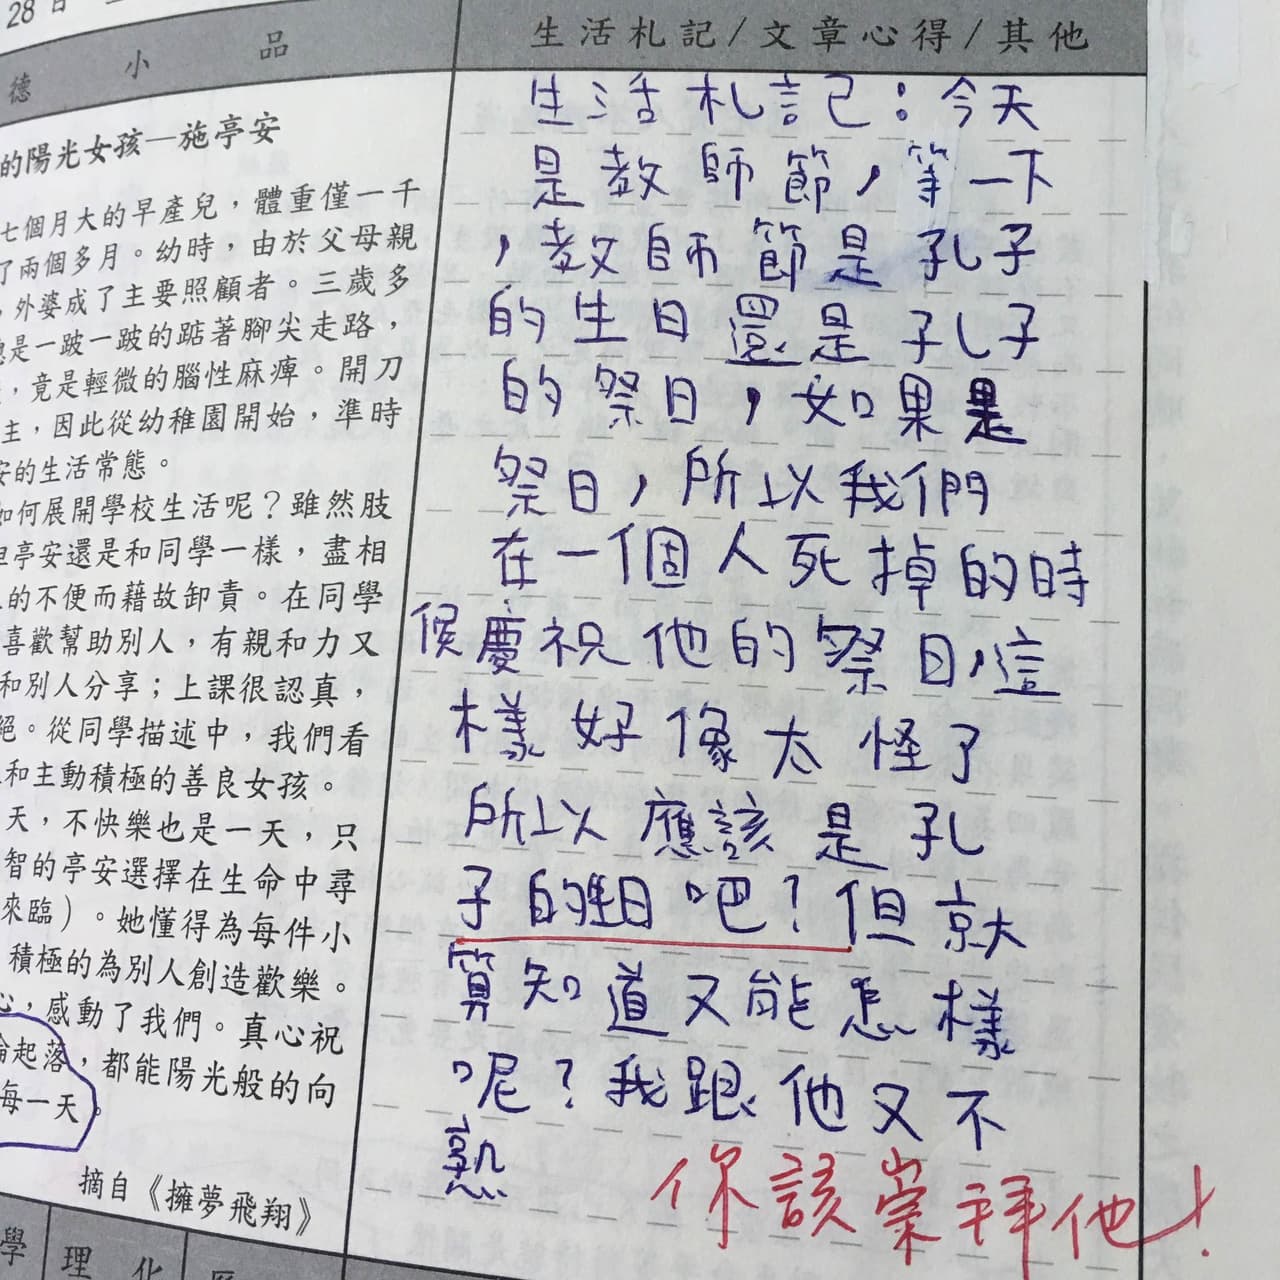 28日
德小品
的陽光女孩—施亭安
七個月大的早產兒，體重僅一千
了兩個多月。幼時，由於父母親
，外婆成了主要照顧者。三歲多
總是一跛一跛的踮著腳尖走路，
，竟是輕微的腦性麻痺。開刀
主，因此從幼稚園開始，準時
安的生活常態。
如何展開學校生活呢？雖然肢
但亭安還是和同學一樣，盡相
的不便而藉故卸責。在同學
喜歡幫助別人，有親和力又
和別人分享；上課很認真，
絕。從同學描述中，我們看
和主動積極的善良女孩。
天，不快樂也是一天，只
智的亭安選擇在生命中尋
來臨）。她懂得為每件小
積極的為別人創造歡樂。
心，感動了我們。真心祝
起落，都能陽光般的向
每一天。
摘自《擁夢飛翔》
學
理化
生活札記/文章心得/其他
生活札記：今天
是教師節，等一下
，教師節是孔子
的生日還是孔子
的祭日，如果是
祭日，所以我們
在一個人死掉的時
候慶祝他的祭日，這
樣好像太怪了
所以應該是孔
子的生日吧？但就
算知道又能怎樣
呢？我跟他又不
熟
你該崇拜他！